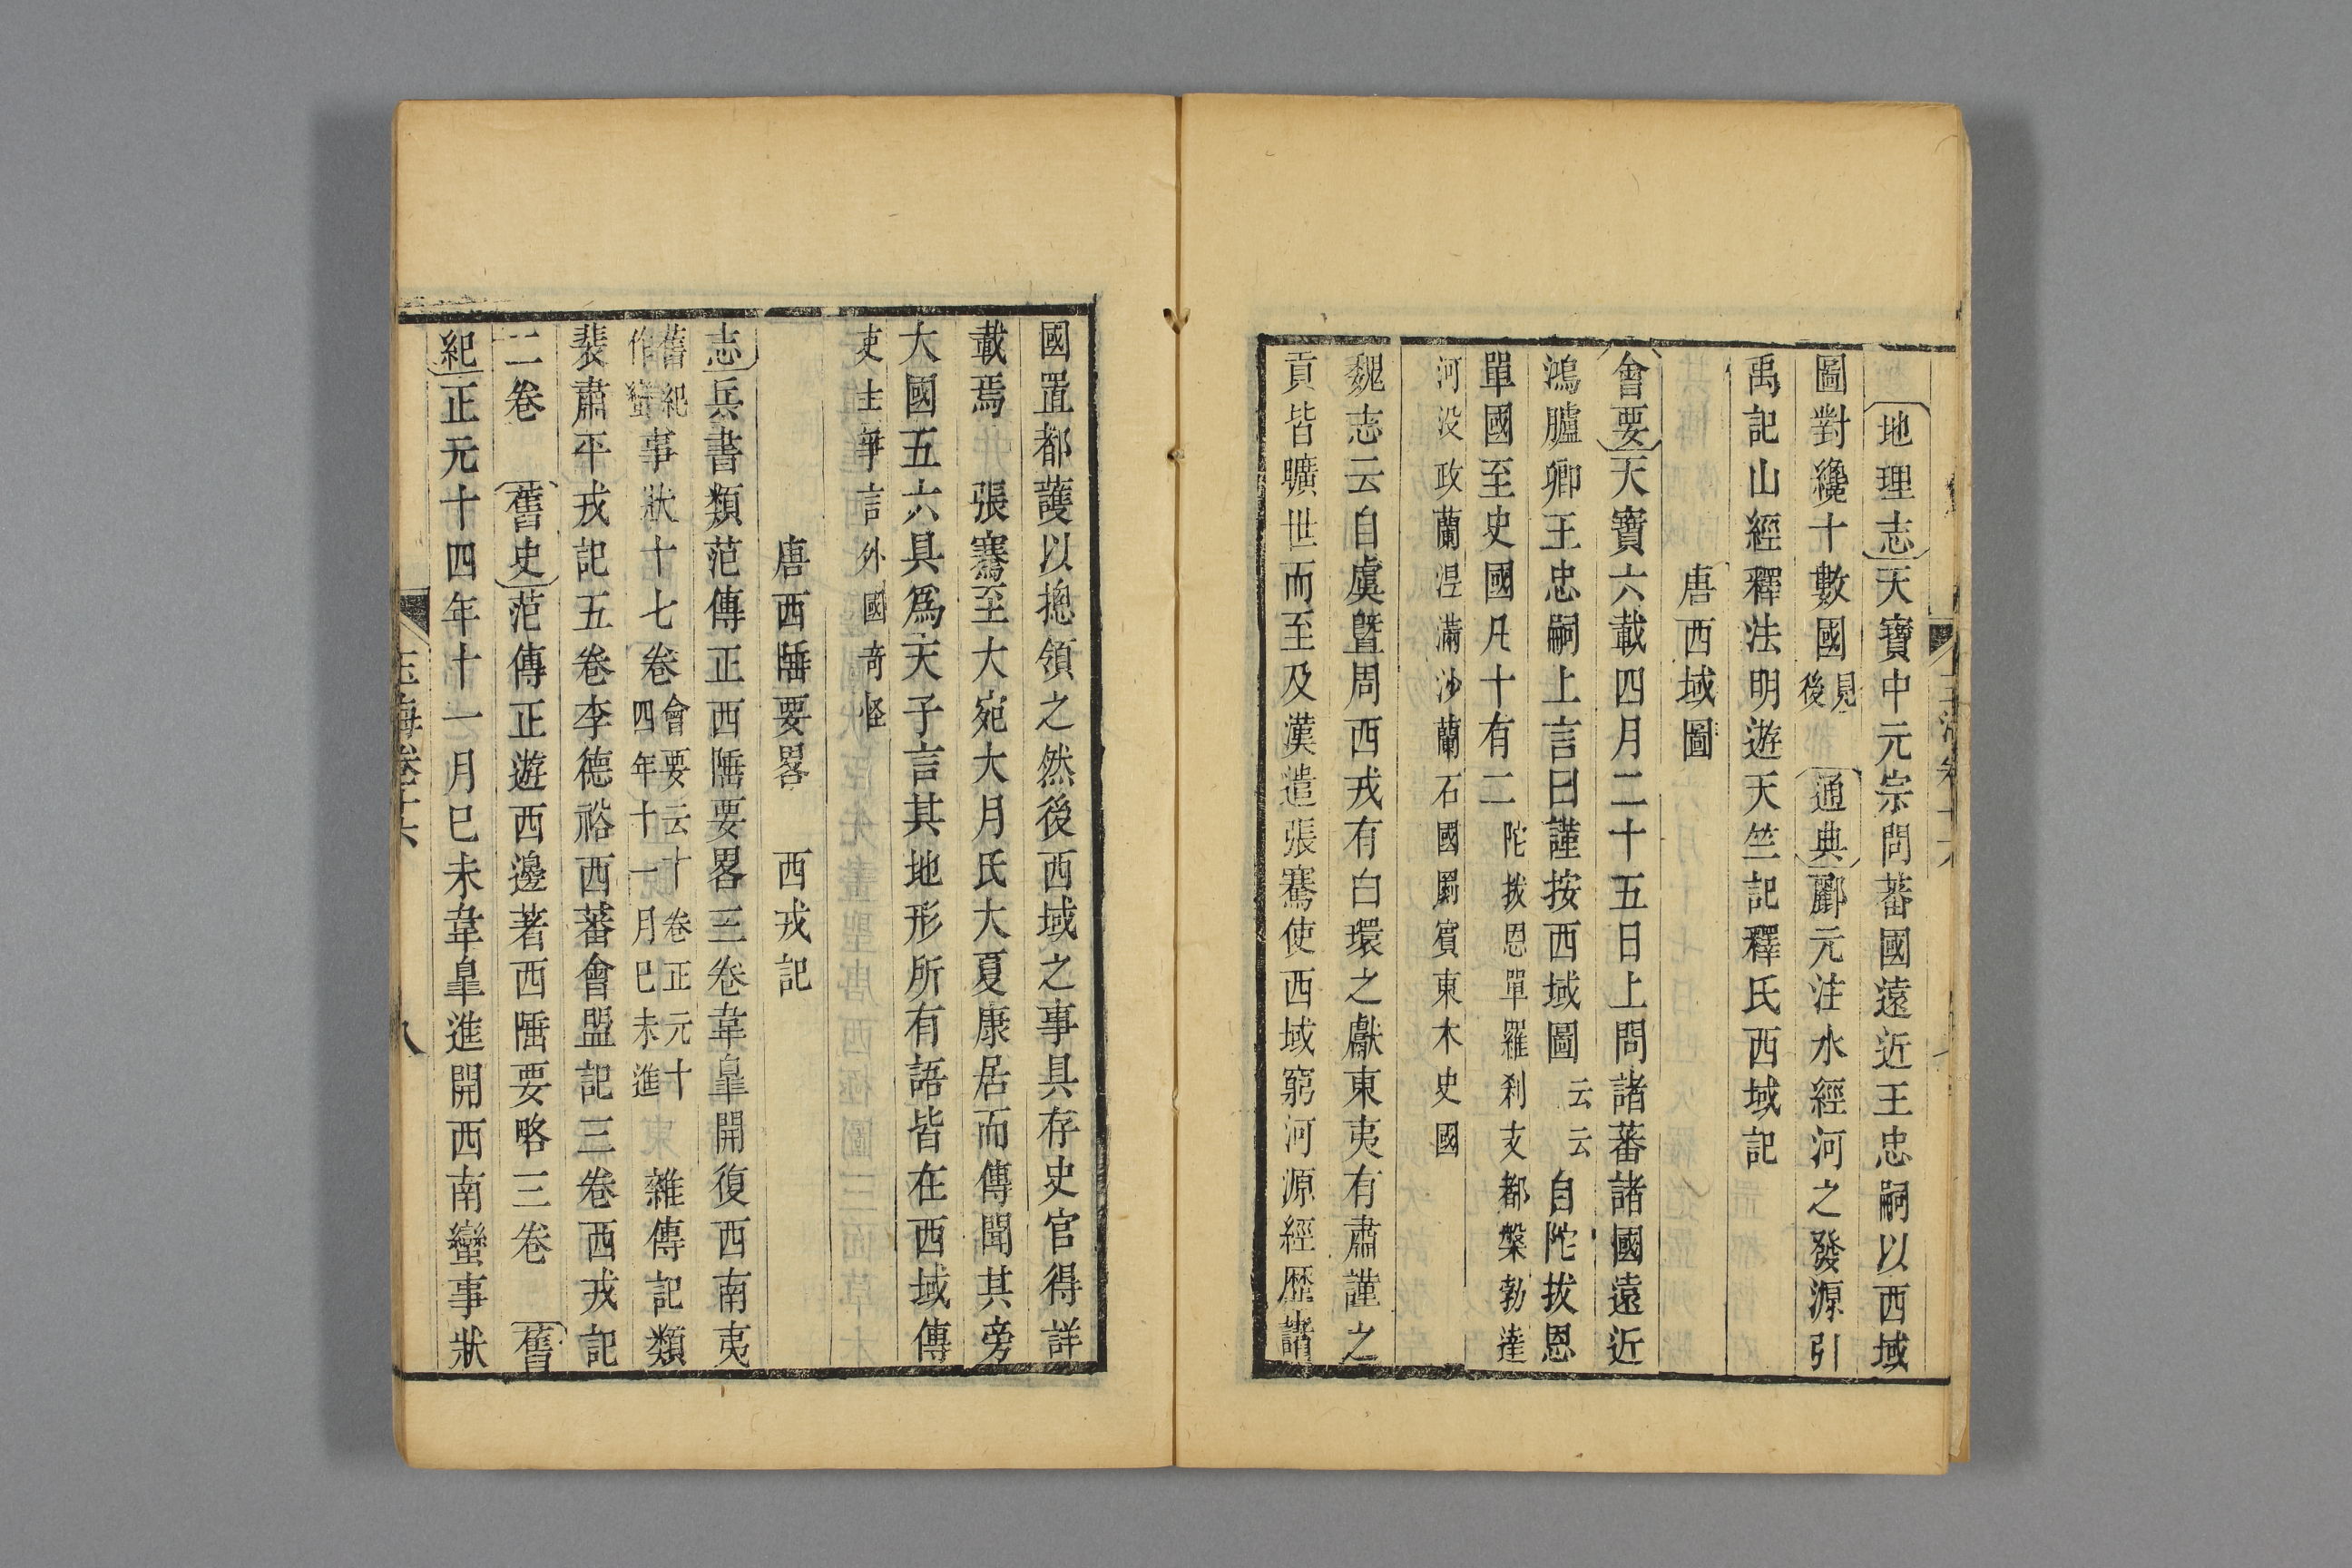 地理志天寶中元宗問蕃國遠近王忠嗣以西域
圖對纔十數國見後 通典酈元注水經河之發源引
禹記山經釋法明遊天竺記釋氏西域記
唐西域圖
會要天寶六載四月二十五日上問諸蕃諸國遠近
鴻臚卿王忠嗣上言曰謹按西域圖云云自陀拔恩
單國至史國凡十有二陀拔恩單羅刹支都槃勃達
河没政蘭涅滿沙蘭石國罽賓東木史國
魏志云自虞暨周西戎有白環之獻東夷有肅謹之
貢皆曠世而至及漢遣張騫使西域窮河源經歷諸
國置都護以摠領之然後西域之事具存史官得詳
載焉 張騫至大宛大月氏大夏康居而傳聞其旁
大國五六具爲天子言其地形所有語皆在西域傳
吏士爭言外國奇怪
唐西陲要畧 西戎記
志兵書類范傳正西陲要畧三卷韋臯開復西南夷
舊紀作蠻事狀十七卷會要云十卷正元十四年十一月巳未進 雜傳記類
裴肅平戎記五卷李德裕西蕃會盟記三卷西戎記
二卷 舊史范傳正遊西邊著西陲要略三卷 舊
紀正元十四年十一月巳未韋臯進開西南蠻事狀
玉海卷十六
八